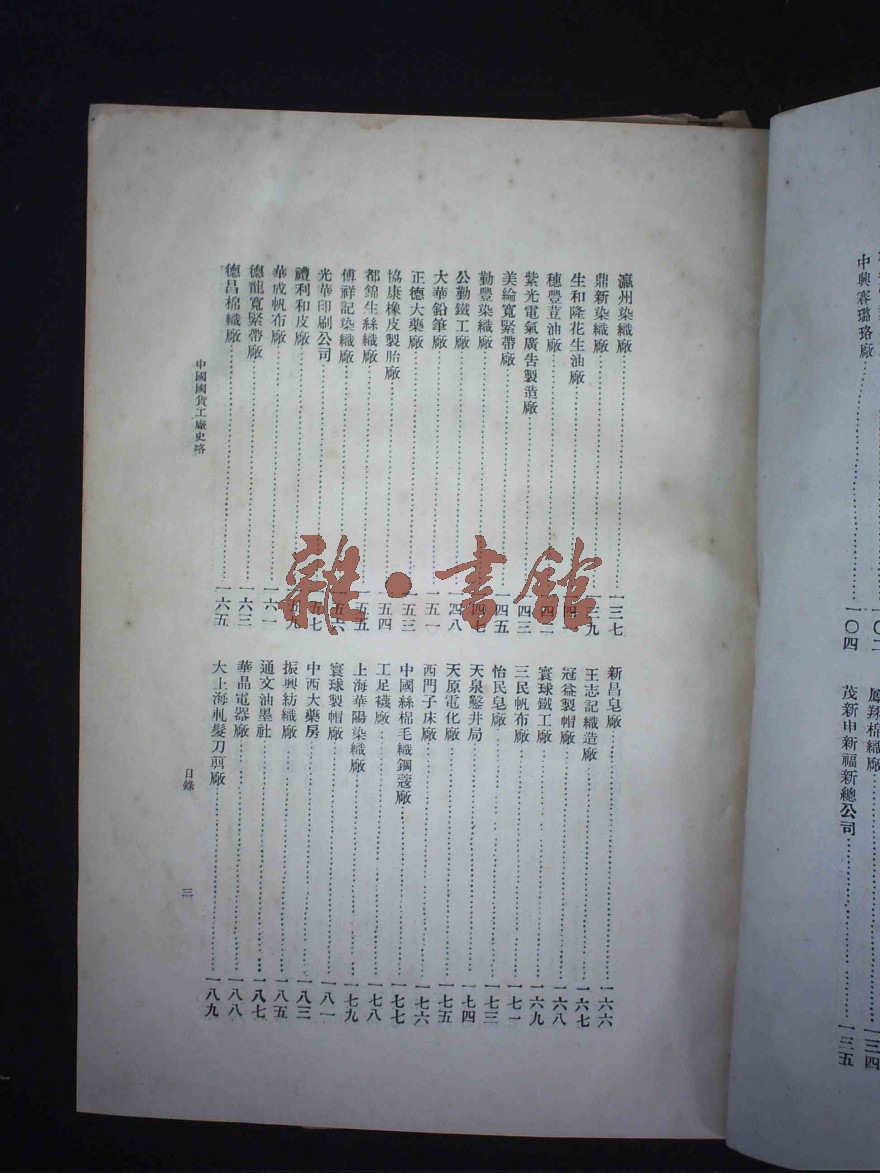 瀛州染織廠…一三七
鼎新染織廠…一三九
生和隆花生油廠…一四
穗豐荳油廠…一四二
紫光電氣廣告製造廠…一四三
美綸寬緊帶廠…一四五
勤豐染織廠…一四七
公勤鐵工廠…一四八
大華鉛筆廠…一五一
正德大藥廠…一五三
協康橡皮製胎廠…一五四
都錦生絲織廠…一五五
傅祥記染織廠…一五六
光華印刷公司…一五七
禮利和皮廠…一五九
華成帆布廠…一六一
德龍寬緊帶廠…一六三
德昌棉織廠…一六五
新昌皂廠…一六六
王志記織造廠…一六七
冠益製帽廠…一六八
寰球鐵工廠…一六九
三民帆布廠…一七一
怡民皂廠…一七三
天泉鑿井局…一七四
天原電化廠…一七五
西門子床廠…一七六
中國絲棉毛織鋼蔻廠…一七七
工足襪廠…一七八
上海華陽染織廠…一七九
寰球製帽廠…一八一
中西大藥房…一八三
振興紡織廠…一八五
通文油墨社…一八七
華晶電器廠…一八八
大上海軋髮刀剪廠…一八九
中國國貨工廠史略
目錄
三
中興賽璐珞廠…一〇四
一〇二
鳳翔棉織廠…一三四
茂新申新福新總公司…一三五
雜·書館